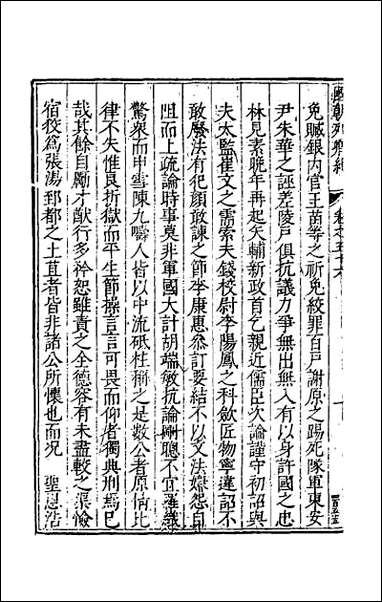 免贓銀內官王苗等之祈免絞罪百戶謝原之踢死隊軍東安
尹朱華之誣差陵戶俱抗議力爭無出無入有以身許國之忠
林見素晚年再起矢輔新政首乞親近儒臣次論謹守初詔與
夫太監崔文之需索夫錢校尉李陽鳳之科歛匠物寧違詔不
敢廢法有犯顏敢諫之節李康惠叅訂要結不以文法嫌怨自
阻而上疏論時事莫非軍國大計胡端敏抗論剛聰不宜羅織
驚舉而申雪陳九疇人皆以中流砥柱稱之是數公者原情比
律不失惟良折獄而平生節操言言可畏而仰者獨典刑焉已
哉其餘自勵才猷行多衿恕雖責之全德容有未盡較之深險
宿狡為張湯郅都之土苴者皆非諸公所懷也而況 聖恩浩
國朝列卿紀
卷之五十六